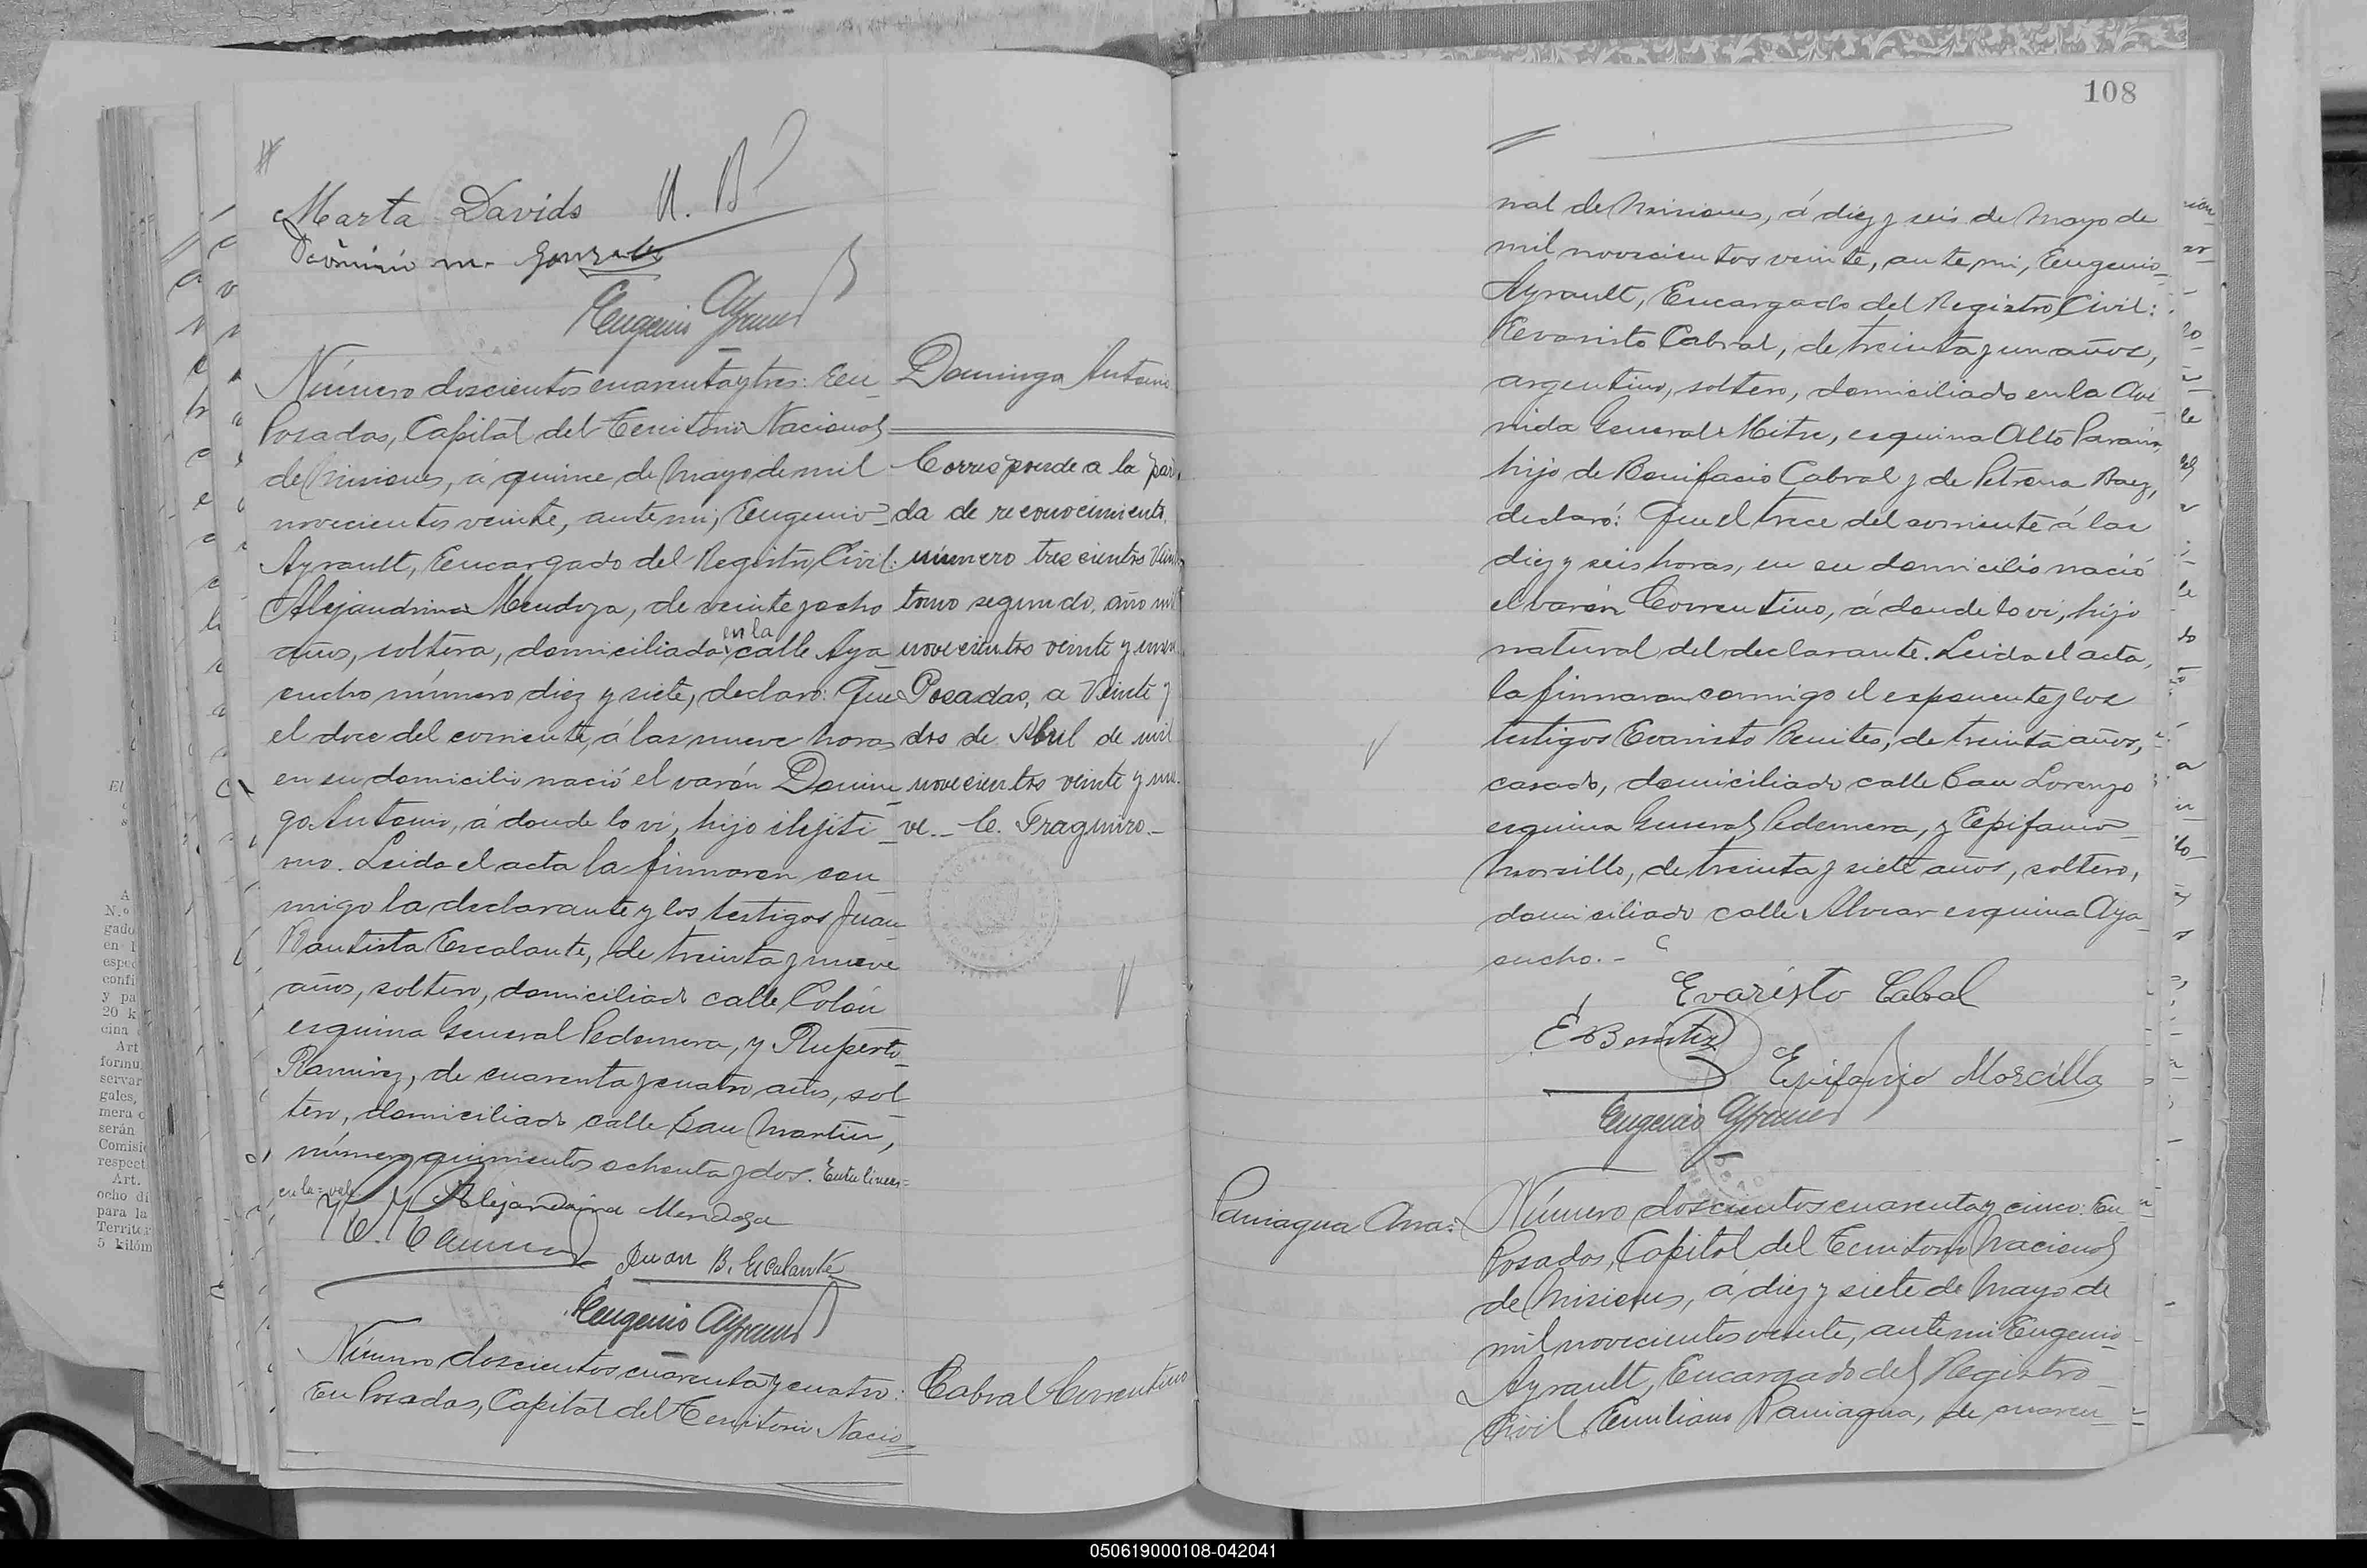 Marta Davids
Número doscientos cuarenta y tres: En
Posadas, Capital del Territorio Nacional
de Misiones, á quince de Mayo de mil
novecientos veinte, ante mi, Eugenio
Ayrault, Encargado del Registro Civil:
Alejandrina Mendoza, de veinte y ocho
en la
años, soltera, domiciliada calle Aya
cucho número diez y siete, declaró: Que
el doce del corriente, á las nueve horas
en su domicilio nació el varón Domin
go Antonio, á donde lo vi, hijo ilejiti
mo. Leida el acta la firmaron con
migo la declarante y los testigos Juan
Bautista Escalante, de treinta y nueve
años, soltero, domiciliado calle Colón
esquina General Pedernera, y Ruperto
Ramirez, de cuarenta y cuatro años, sol
tero, domiciliado calle San Martin,
número quinientos ochenta y dos. Entre lineas=
en la=vale.
Alejandrina Mendoza
Juan B. Escalante
Eugenio Ayrault
Número doscientos cuarenta y cuatro:
En Posadas, Capital del Territorio Nacio
Domingo Antonio
Corresponde a la par
da de reconocimiento
número trescientos
tomo segundo, año mil
novecientos veinte y
Posadas, a Veinte y
dos de Abril de mil
novecientos veinte y nue
ve._ C. Fragueiro._
Cabral Correntino
108
nal de Misiones, á diez y seis de Mayo de
mil novecientos veinte, ante mi, Eugenio
Ayrault, Encargado del Registro Civil:
Evaristo Cabral, de treinta y un años,
argentino, soltero, domiciliado en la Ave
nida General Mitre, esquina Alto Paraná,
hijo de Bonifacio Cabral y de Petrona Baez,
declaró: Que el trece del corriente á las
diez y seis horas, en su domicilio nació
el varón Correntino, á donde lo vi, hijo
natural del declarante. Leida el acta,
la firmaron conmigo el exponente y los
testigos Evaristo Benites, de treinta años,
casado, domiciliado calle San Lorenzo
esquina General Pedernera, y Epifanio
Morcillo, de treinta y siete años, soltero,
domiciliado calle Alvear esquina Aya
cucho.-
Evaristo Cabral
E Benitez
Epifanio Morcillo
Eugenio Ayrault
Paniagua Ana:
Número doscientos cuarenta y cinco: En
Posadas, Capital del Territorio Nacional
de Misiones, á diez y siete de Mayo de
mil novecientos veinte, ante mi Eugenio
Ayrault, Encargado del Registro
Civil Emiliano Paniagua, de cuaren
050619000108-042041